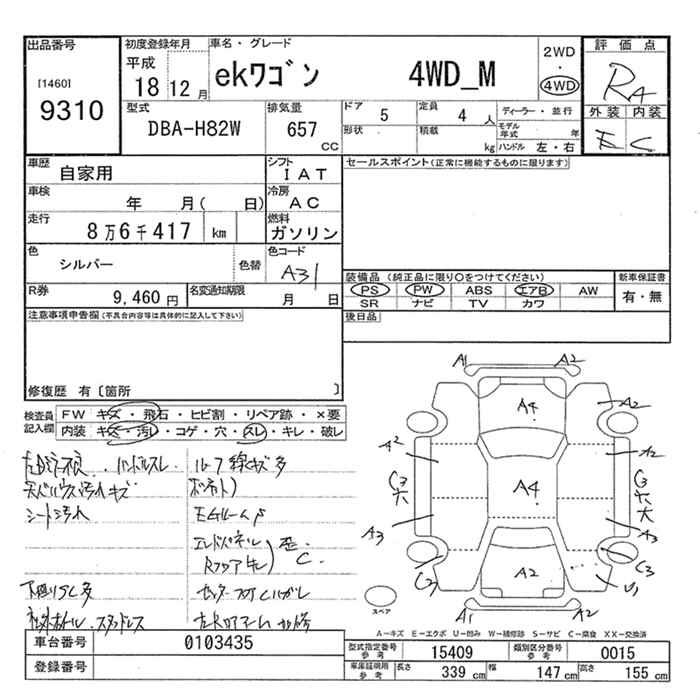 出品番号
[1460]
9310
初度登録年月
平成
18 12月
車名・グレード
ekワゴン 4WD_M
2WD
・
4WD
評価点
RA
外装 内装
E C
型式
DBA-H82W
排気量
657
CC
ドア 5
定員 4 人
ディーラー・並行
形状
積載 kg
モデル年式 年
ハンドル 左・右
車歴
自家用
シフト
IAT
セールスポイント(正常に機能するものに限ります)
車検
年 月( 日)
冷房
AC
走行
8万6千417 km
燃料
ガソリン
色
シルバー
色替
色コード
A31
装備品(純正品に限り○をつけてください)
PS PW ABS エアB AW
SR ナビ TV カワ
新車保証書
有・無
R券
9,460円
名変通知期限
月 日
後日品
注意事項申告欄(不具合内容等は具体的に記入して下さい)
修復歴 有〔箇所 〕
検査員記入欄
FW キズ・飛石・ヒビ割・リペア跡・×要
内装 キズ・汚レ・コゲ・穴・スレ・キレ・破レ
ハンドルスレ
ルーフ線キズ多
天バリハウス汚れキズ
ボンネット)
シート汚れ
エンドパネル
Rフロア
C
下廻りSC多
スタッドレス
A1 A2
A4
A2
A2 A2
C3 C3
大 大
A4
A3 A3
C2 C3
A2
U1
A1 A2
スペア
A-キズ E-エクボ U-凹み W-補修跡 S-サビ C-腐食 XX-交換済
車台番号
0103435
登録番号
型式指定番号 参考
15409
類別区分番号 参考
0015
車庫証明用 参考
長さ 339 cm
幅 147 cm
高さ 155 cm